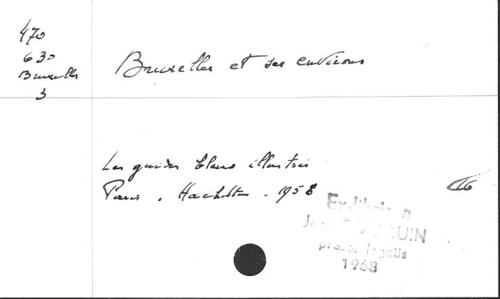 470
630
Bruxelles
3
Bruxelles et ses environs
Les guides bleus illustrés
Paris. Hachette. 1958
Ex-libris
1968